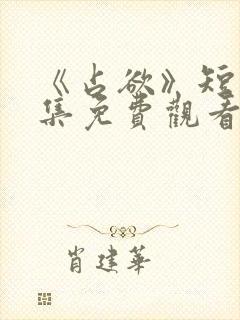 《占欲》短
集免費觀看
肖建華